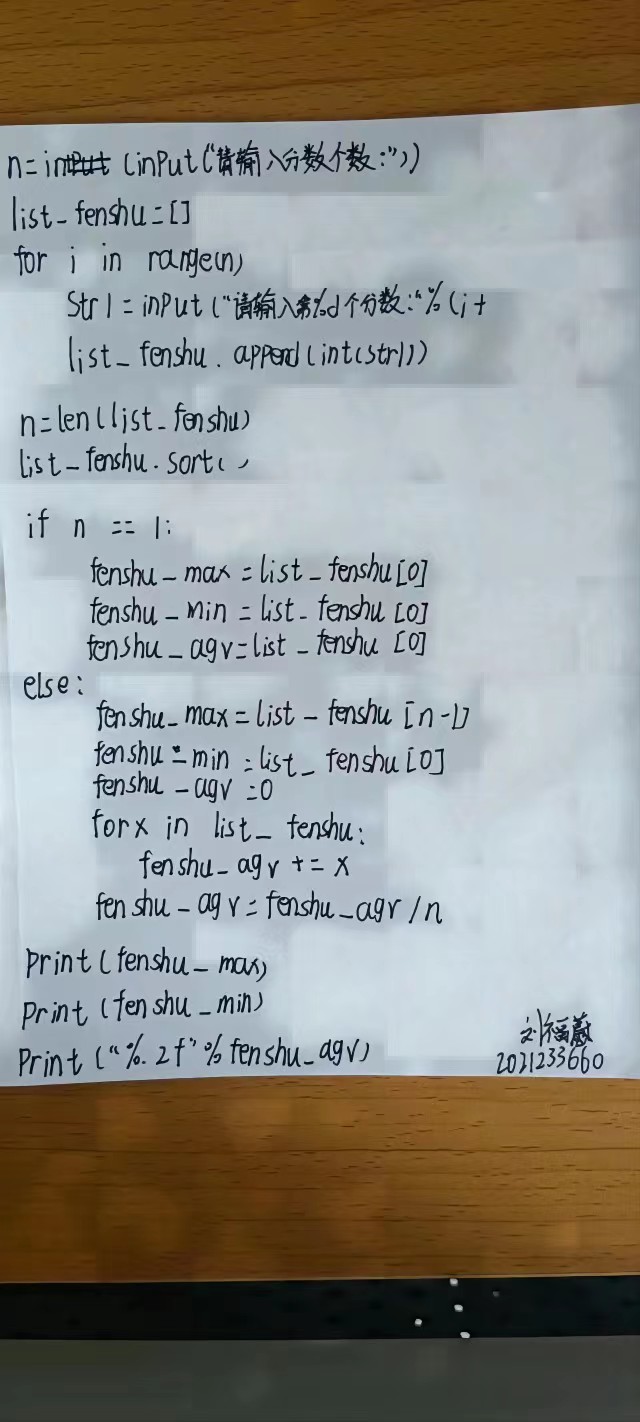 n=int (inPut("请输入分数个数:"))
list_fenshu=[]
for i in range(n)
Str1=inPut("请输入第%d个分数:"%(i+
list_fenshu.append(int(str1))
n=len(list_fenshu)
list_fenshu.sort()
if n == 1:
fenshu_max=list_fenshu[0]
fenshu_min=list_fenshu[0]
fenshu_agv=list_fenshu[0]
else:
fenshu_max=list_fenshu[n-1]
fenshu_min=list_fenshu[0]
fenshu_agv=0
for x in list_fenshu:
fenshu_agv += x
fenshu_agv=fenshu_agv/n
Print(fenshu_max)
Print(fenshu_min)
Print("%.2f"%fenshu_agv)
刘福蔚
2021233660